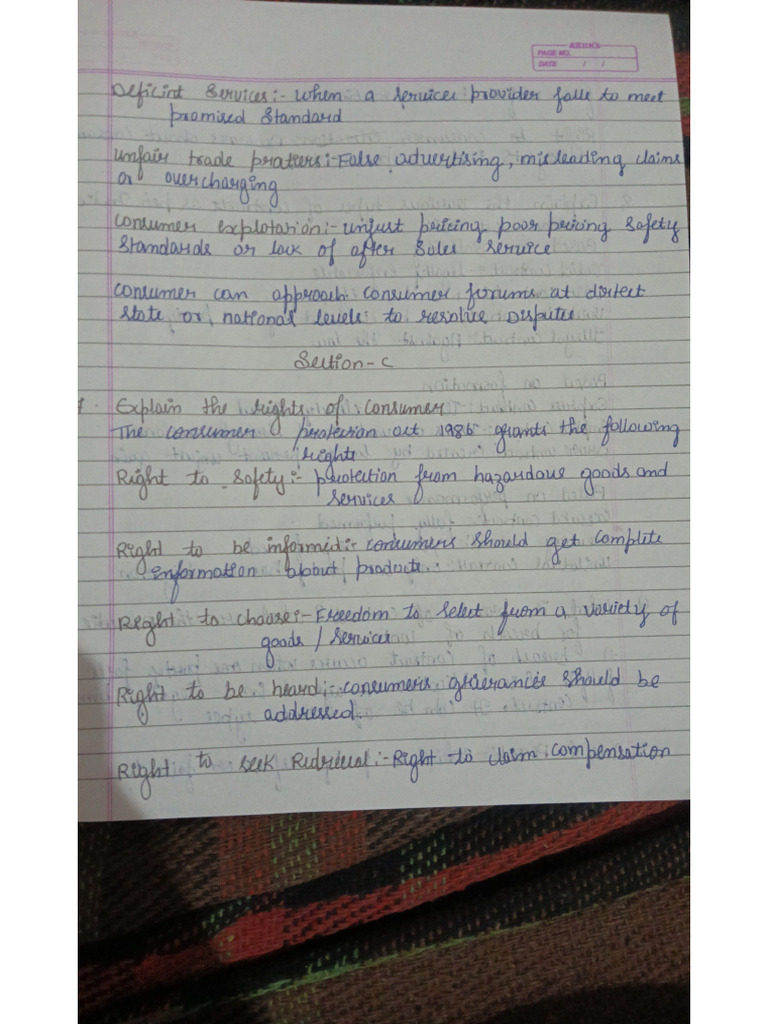 ARUN'S
PAGE NO.
DATE / /
Deficint Services:- when a services provider falle to meet
promised Standard
unfair trade pratiers:- False advertising, misleading claims
or overcharging
consumer explotarion:- unjust pricing, poor pricing safety
Standards or lack of after sales service
consumer can approach consumer forums at distect
state or national levels to resolve Disputes
Section-c
1. Explain the rights of consumer
The consumer protection act 1986 grants the following
rights
Right to safety:- protection from hazardous goods and
services
Right to be informed:- consumers should get complete
information about products.
Right to choose:- Freedom to select from a variety of
goods / services
Right to be heard:- consumers grierances should be
addressed.
Right to seek Redressal:- Right to claim compensation